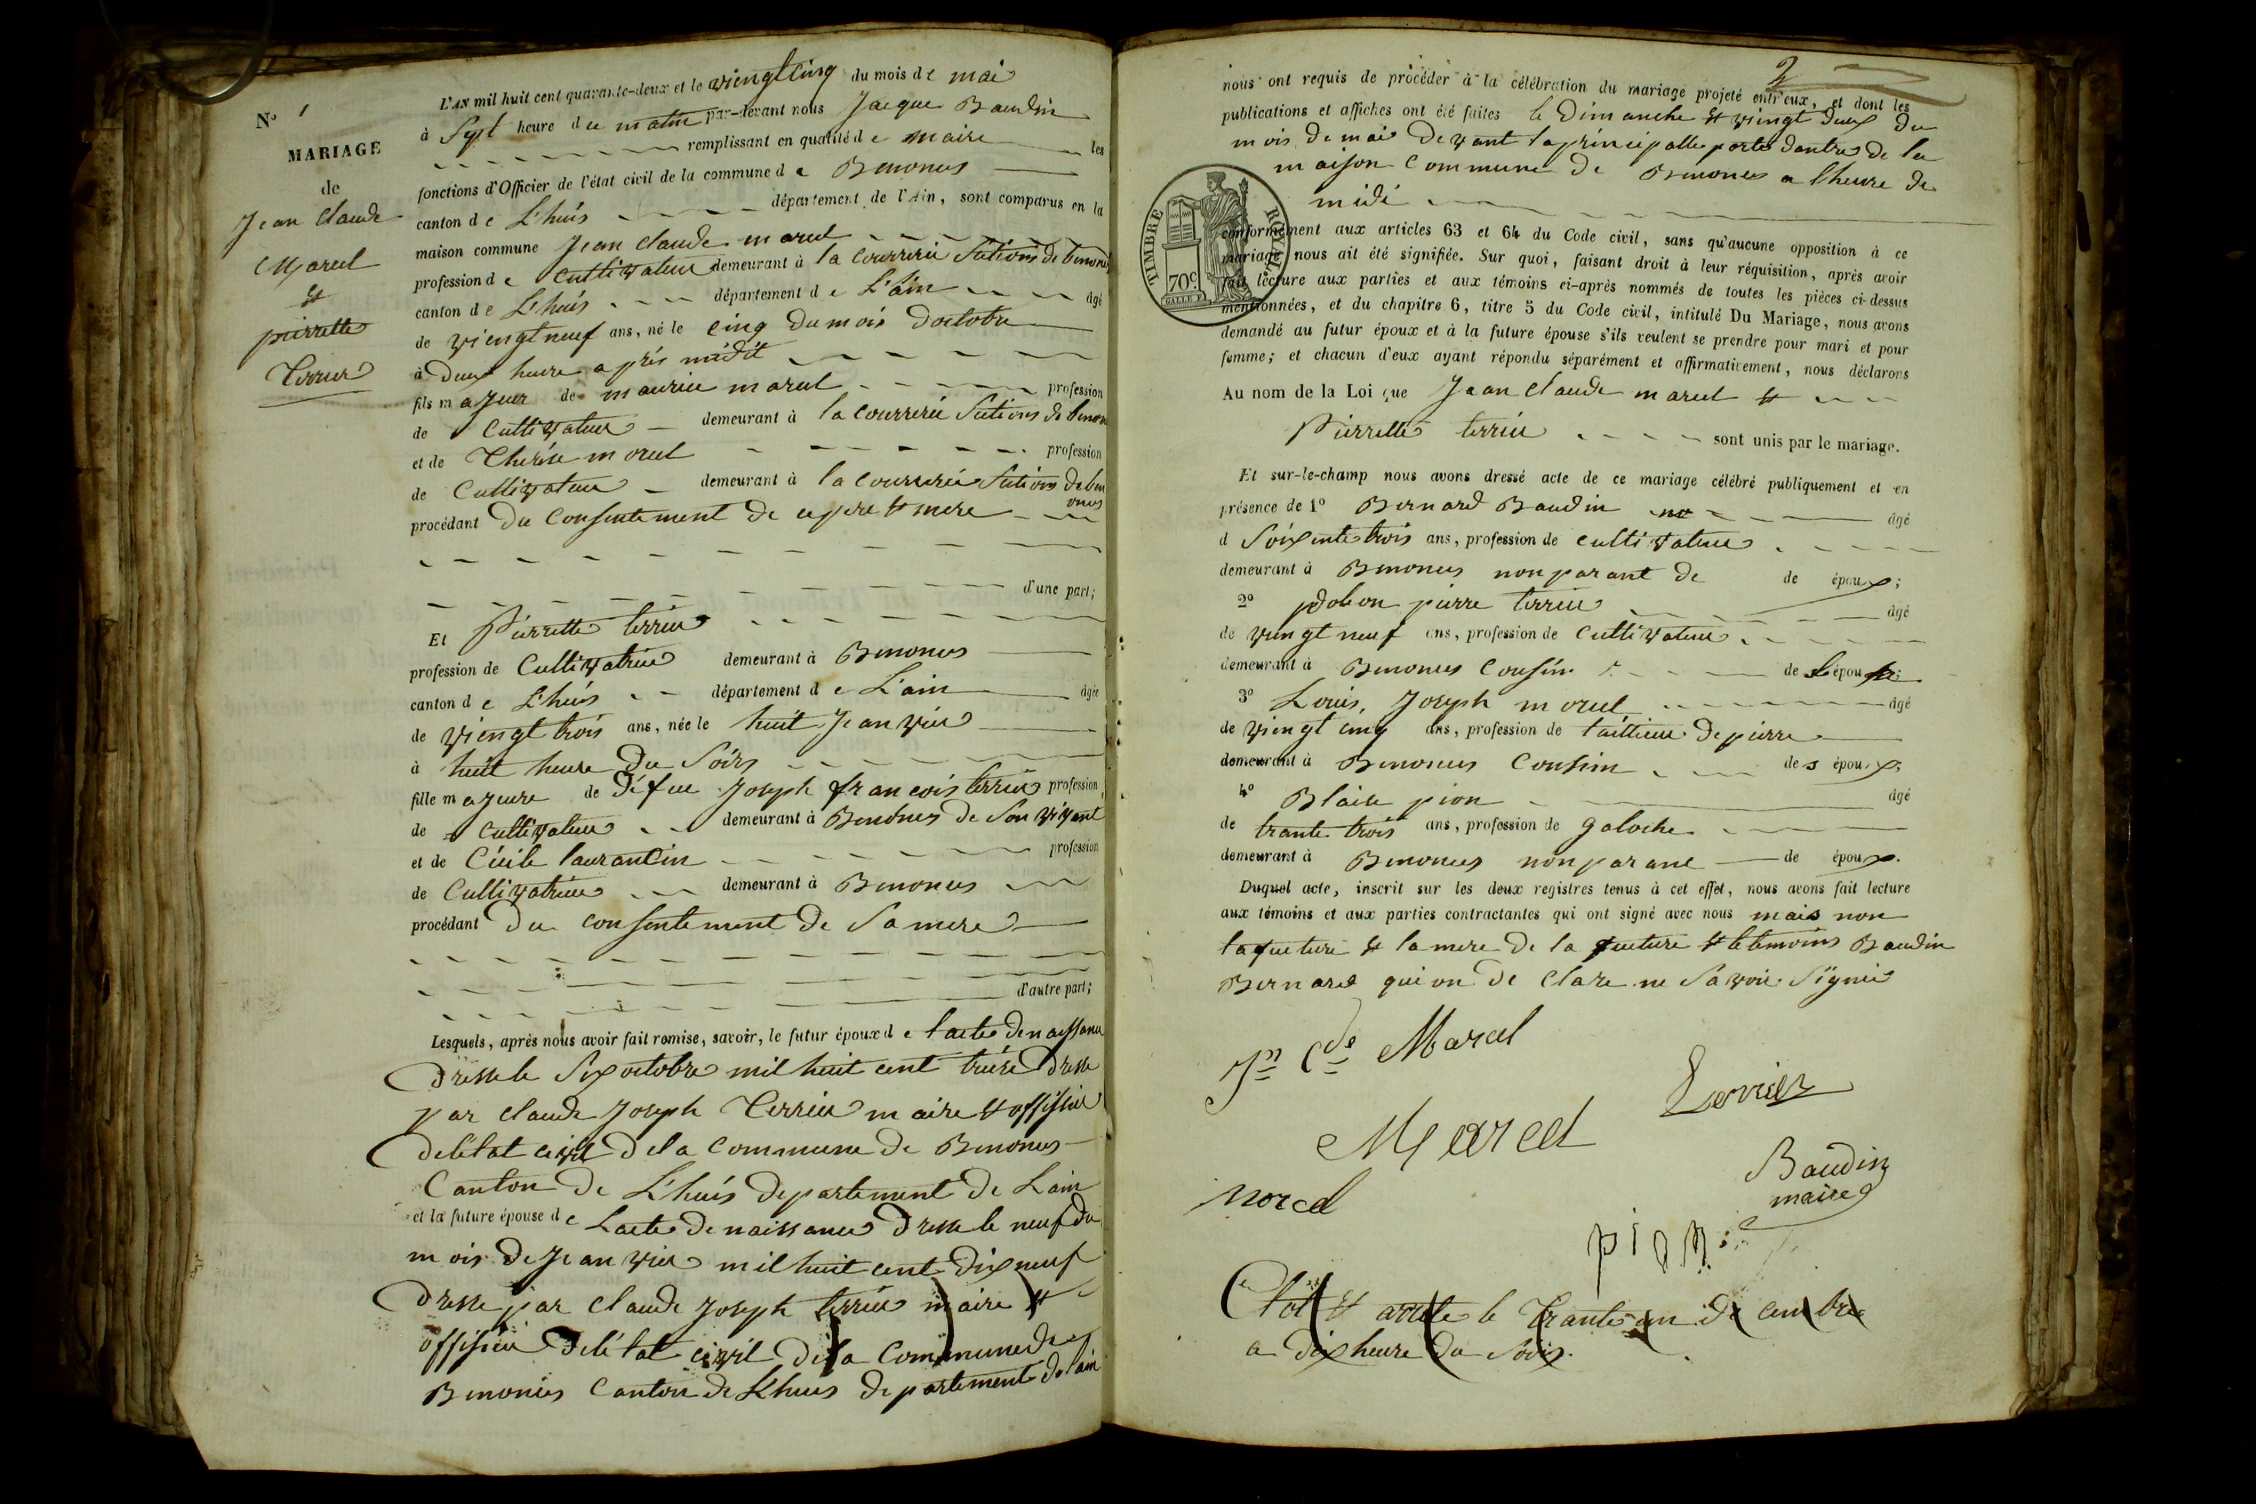 N.° 1
MARIAGE
de
Jean claude
Marcel
&
pierrette
Terrier
L'AN mil huit cent quarante-deux et le viengtCinq du mois de mai
à Sept heure du matin par-devant nous Jacque Baudin
remplissant en qualité de maire les
fonctions d'Officier de l'état civil de la commune de Benonces
canton de L'huis département de l'Ain, sont comparus en la
maison commune Jean claude marcel
profession de Cultivateur demeurant à la Courrerie Sections de benonces
canton de L'huis département de L'ain âgé
de viengt neuf ans, né le cinq du mois doctobre
à Deux heure aprés midit
fils majeur de maurice marcel profession
de Cultivateur demeurant à la courrerie Sections de benon
et de Thérése morel profession
de Cultivateur demeurant à la courrerie Sections de ben
onces
procédant du Consentement de ce pere & mere
d'une part;
Et Pierrette terrier
profession de Cultivatrice demeurant à Benonces
canton de L'huis département de L'ain âgée
de viengt trois ans, née le huit Jeanvier
à huit heure du Soirs
fille majeure de Défue Joseph françois terrier profession
de Cultivateur demeurant à Benonces de Son vivant
et de Cécile laurantin profession
de Cultivatrice demeurant à Benonces
procédant du consentement de Sa mere
d'autre part;
Lesquels, après nous avoir fait remise, savoir, le futur époux de lacte de naissance
Dresse le Six octobre mil huit cent treise Dresse
par claude Joseph Terrier maire & offisier
deletat civil dela commune de Benonces
Canton de L'huis departement de Lain
et la future épouse de Lacte de naissance Dresse le neuf du
mois de Jeanvier mil huit cent dixneuf
Dresse par claude Joseph terrier maire &
offisier delétat civil de la Commune de
Benonces Canton de L'huis departement de lain
2
nous ont requis de procéder à la célébration du mariage projeté entr'eux, et dont les
publications et affiches ont été faites le Dimanche & vingt deux du
mois de mai devant la principalle porte dantre de la
maison Commune de Benonces a lheure de
midi
TIMBRE ROYAL
70c.
conformément aux articles 63 et 64 du Code civil, sans qu'aucune opposition à ce
mariage nous ait été signifiée. Sur quoi, faisant droit à leur réquisition, après avoir
fait lecture aux parties et aux témoins ci-après nommés de toutes les pièces ci-dessus
mentionnées, et du chapitre 6, titre 5 du Code civil, intitulé Du Mariage, nous avons
demandé au futur époux et à la future épouse s'ils veulent se prendre pour mari et pour
femme; et chacun d'eux ayant répondu séparément et affirmativement, nous déclarons
Au nom de la Loi que Jean claude marcel &
Pierrette terrier sont unis par le mariage.
Et sur-le-champ nous avons dressé acte de ce mariage célébré publiquement et en
présence de 1° Bernard Baudin âgé
d Soixente trois ans, profession de cultivateur
demeurant à Benonces non parant de de époux;
2° pierre terrier âgé
de vingt neuf ans, profession de Cultivateur
demeurant à Benonces Cousin de Lépou
3° Louis, Joseph morel âgé
de viengt cinq ans, profession de taillieur de pierre
demeurant à Benonces Coussin des époux;
4° Blaise pion âgé
de trante trois ans, profession de galoche
demeurant à Benonces non parant de époux.
Duquel acte, inscrit sur les deux registres tenus à cet effet, nous avons fait lecture
aux témoins et aux parties contractantes qui ont signé avec nous mais non
la fueture & la mere de la fueture & le temoins Baudin
Bernard qui on de Clare ne Savoir Signie
Jn Cde Marcel
Terrier
Marcel
Baudin
maire
morel
pion
Clot & arrete le Trante un decembre
a dix heure du Soir.